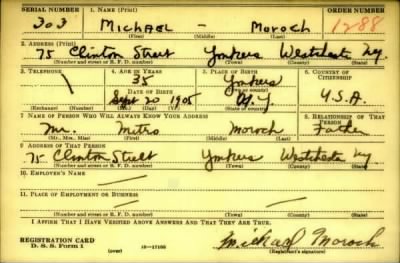 SERIAL NUMBER 1. NAME (Print) ORDER NUMBER
303 MICHAEL - MOROCH 1288
(First) (Middle) (Last)
2. ADDRESS (Print)
75 Clinton Street Yonkers Westchester N.Y.
(Number and street or R. F. D. number) (Town) (County) (State)
3. TELEPHONE 4. AGE IN YEARS 5. PLACE OF BIRTH 6. COUNTRY OF CITIZENSHIP
35 Yonkers
DATE OF BIRTH (Town or county)
Sept 20 1905 N.Y. U.S.A.
(Exchange) (Number) (Mo.) (Day) (Yr.) (State or country)
7. NAME OF PERSON WHO WILL ALWAYS KNOW YOUR ADDRESS 8. RELATIONSHIP OF THAT PERSON
Mr. Mitro Moroch Father
(Mr., Mrs., Miss) (First) (Middle) (Last)
9. ADDRESS OF THAT PERSON
75 Clinton Street Yonkers Westchester N.Y.
(Number and street or R. F. D. number) (Town) (County) (State)
10. EMPLOYER'S NAME
11. PLACE OF EMPLOYMENT OR BUSINESS
(Number and street or R. F. D. number) (Town) (County) (State)
I AFFIRM THAT I HAVE VERIFIED ABOVE ANSWERS AND THAT THEY ARE TRUE.
REGISTRATION CARD
D. S. S. Form 1 (over) 16—17105 Michael Moroch
(Registrant's signature)